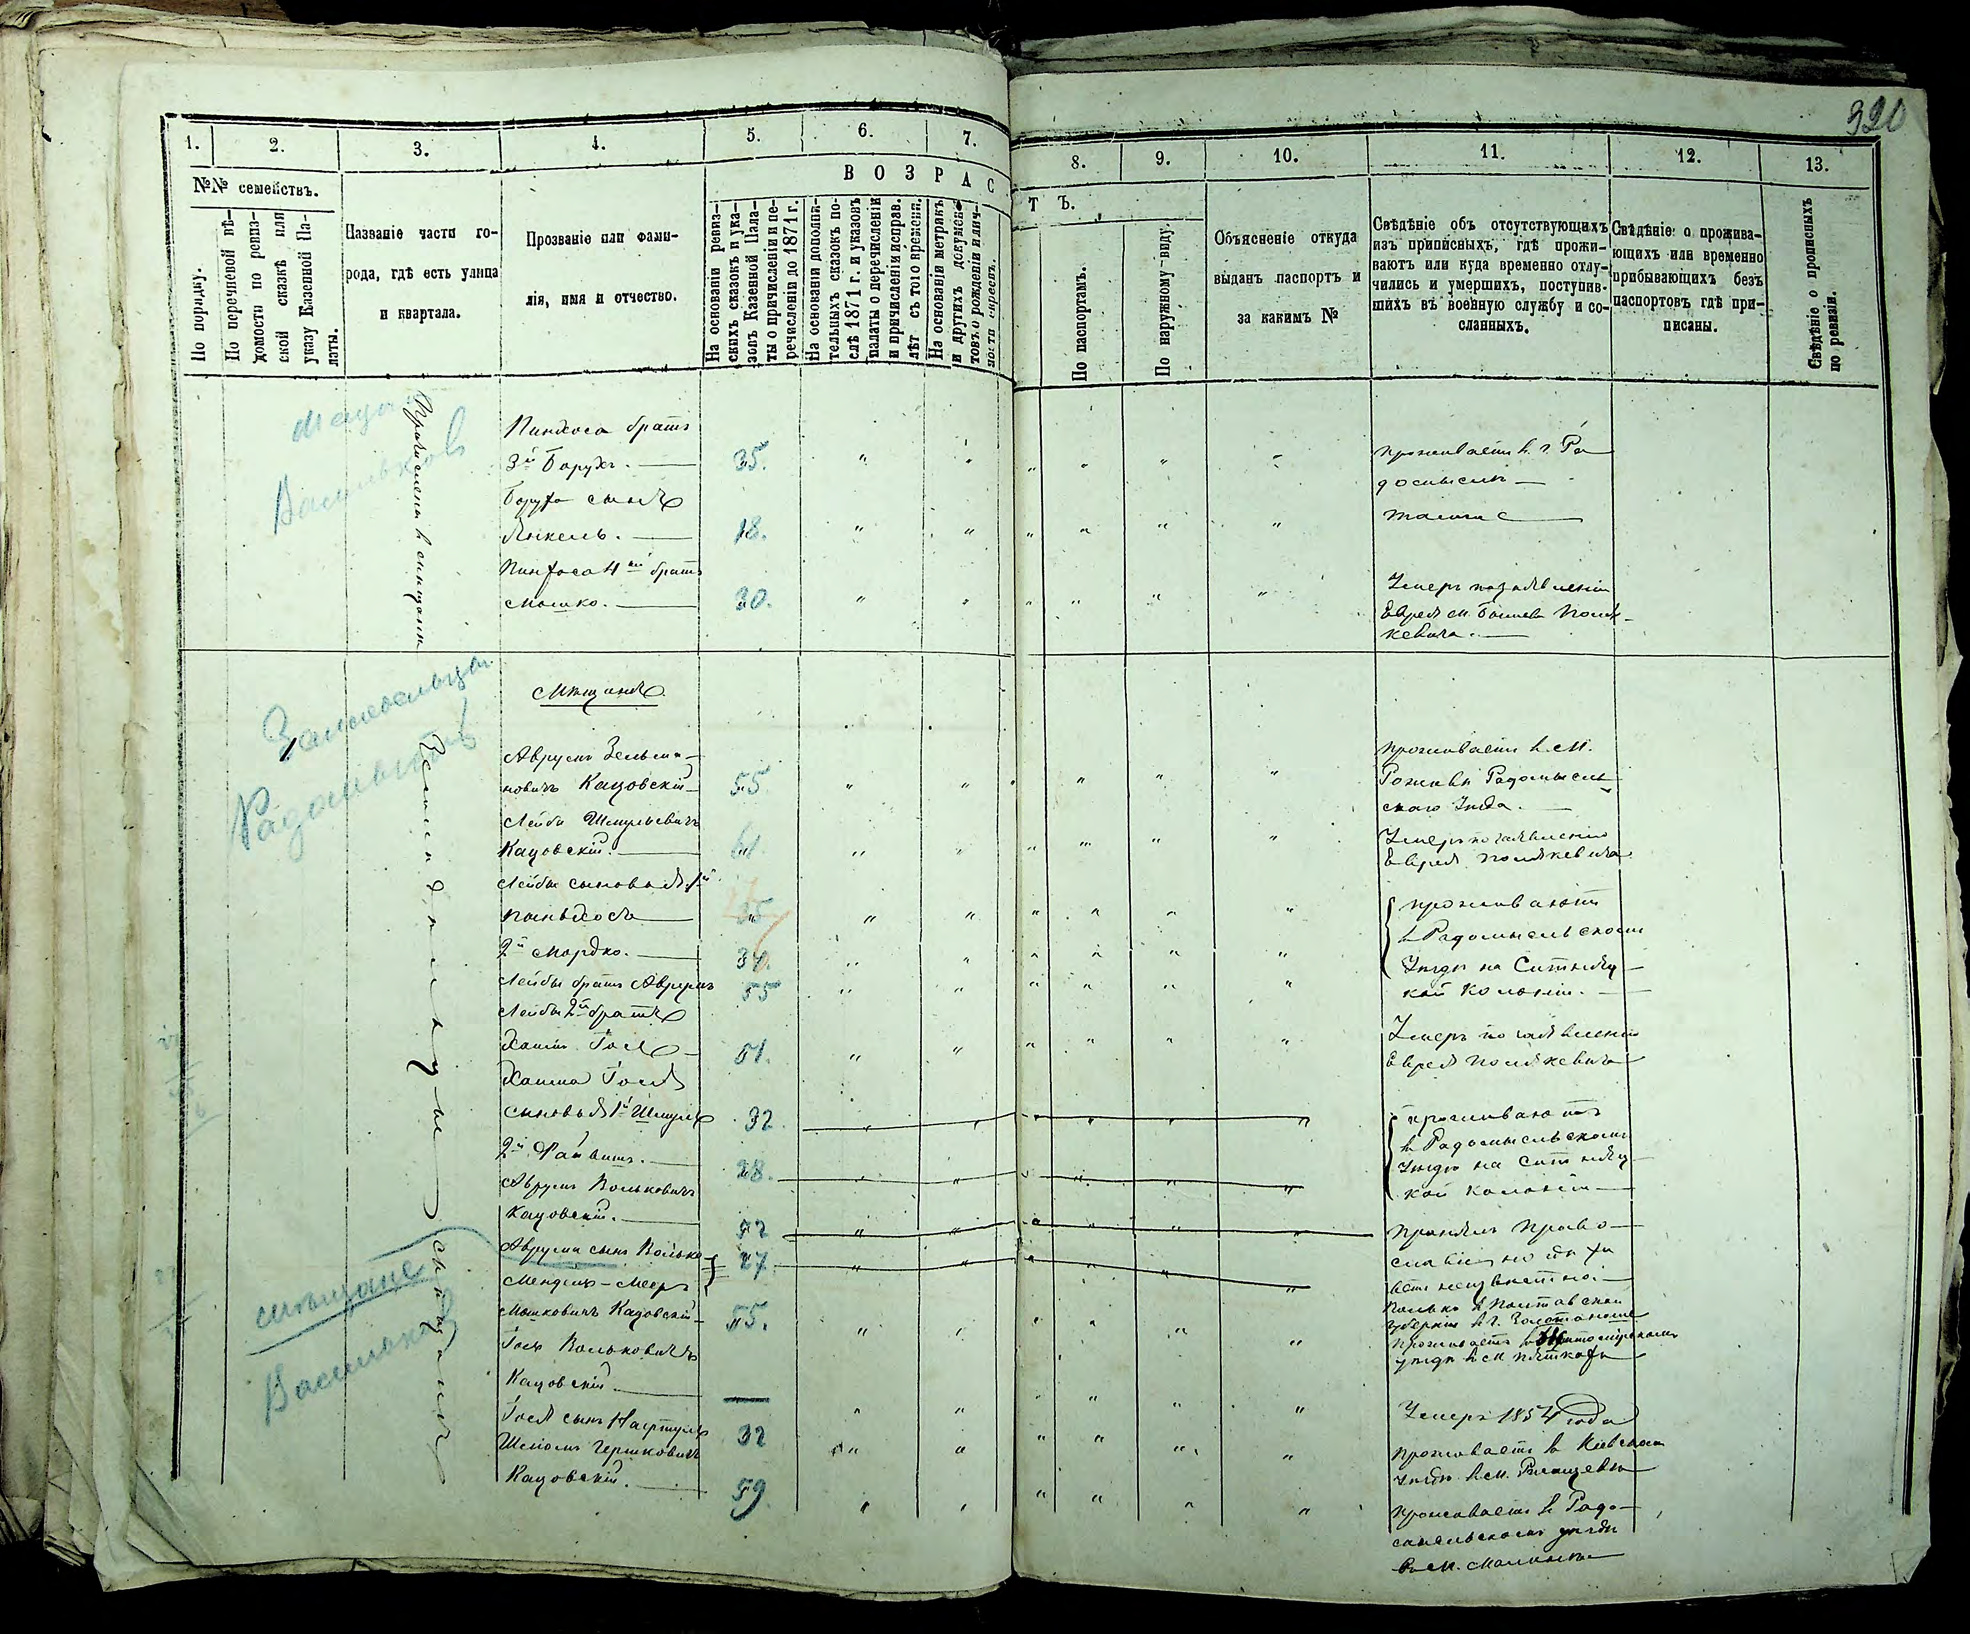 320
1. 2. 3. 4. 5. 6. 7. 8. 9. 10. 11. 12. 13.
№№ семействъ.
По порядку.
По перечневой вѣ-
домости по ревиз-
ской сказкѣ или
указу Казенной Па-
латы.
Названіе части го-
рода, гдѣ есть улица
и квартала.
Прозваніе или фами-
лія, имя и отчество.
ВОЗРАСТЪ.
На основаніи ревиз-
скихъ сказокъ и ука-
зовъ Казенной Пала-
ты о причисленіи и пе-
речисленіи до 1871 г.
На основаніи дополни-
тельныхъ сказокъ по-
слѣ 1871 г. и указовъ
палаты о перечисленіи
и причисленіи исправ.
лѣт съ того времени.
На основаніи метрикъ
и другихъ докумен-
товъ о рожденіи и лич-
ности
По паспортамъ.
По наружному виду.
Объясненіе откуда
выданъ паспортъ и
за какимъ №
Свѣдѣніе объ отсутствующихъ
изъ приписныхъ, гдѣ прожи-
ваютъ или куда временно отлу-
чились и умершихъ, поступив-
шихъ въ военную службу и со-
сланныхъ.
Свѣдѣніе о прожива-
ющихъ или временно
прибывающихъ безъ
паспортовъ гдѣ при-
писаны.
Свѣдѣніе о прописныхъ
по ревизіи.
Васильков
Пинхоса братъ
3й Борухъ. 35.
проживаетъ в г. Ра
домыслѣ
Боруха сынъ
Янкель. 18.
тоже
Пинхоса 4й братъ
Мошко. 30.
Умеръ по заявленію
Еврея м. Поля-
кевича.
Земледельцы
Радомысль
Мѣщанѣ
Аврумъ Зельма-
новичъ Кацовскій 55
проживаетъ в м.
Рожевѣ Радомысль
скаго Уѣзда.
Лейба Шмульевичъ
Кацовскій. 61.
Умеръ по заявленію
Еврея Полякевича
Лейбы сыновья 1й
Пиньхосъ
2й Мордко. 34.
Лейбы братъ Аврумъ 55
проживаютъ
в Радомысльскомъ
Уѣздѣ на Ситняц-
кой Колоніи.
Лейбы 2й братъ
Хаимъ Гось 51.
Умеръ по заявленію
Еврея Полякевича
Хаима Гося
сыновья 1й Шмуль 32
2й 28.
проживаютъ
в Радомысльскомъ
Уѣздѣ на Ситняц-
кой Колоніи
Аврумъ Вольковичъ
Кацовскій. 52
Принялъ Право-
славіе но гдѣ
неизвестно.
Аврума сынъ Волько 27
Волько в Полтавской
губерніи в г. Золотоноше
Мендель-Меер
Мошковичъ Кацовскій 55.
Проживаетъ в Житомірскомъ
уѣздѣ в м
мѣщане
Васильков
Гось Вольковичъ
Кацовскій
Умеръ 1854 года
Гося сынъ Нафтуль 32
Проживаетъ в Кіевскомъ
Уѣздѣ в м. Ржищевѣ
Шлiомъ Гершковичъ
Кацовскій. 59
Проживаетъ в Радо-
мысльскомъ уѣздѣ
в м. Малинѣ